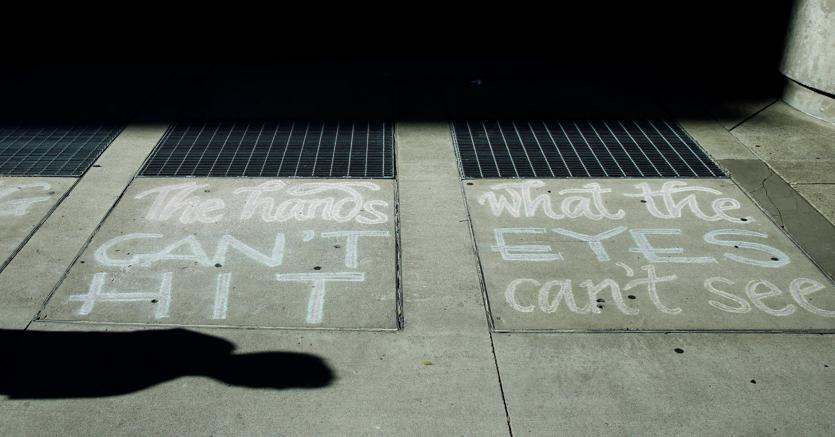 The hands
CAN'T
HIT
what the
EYES
can't see